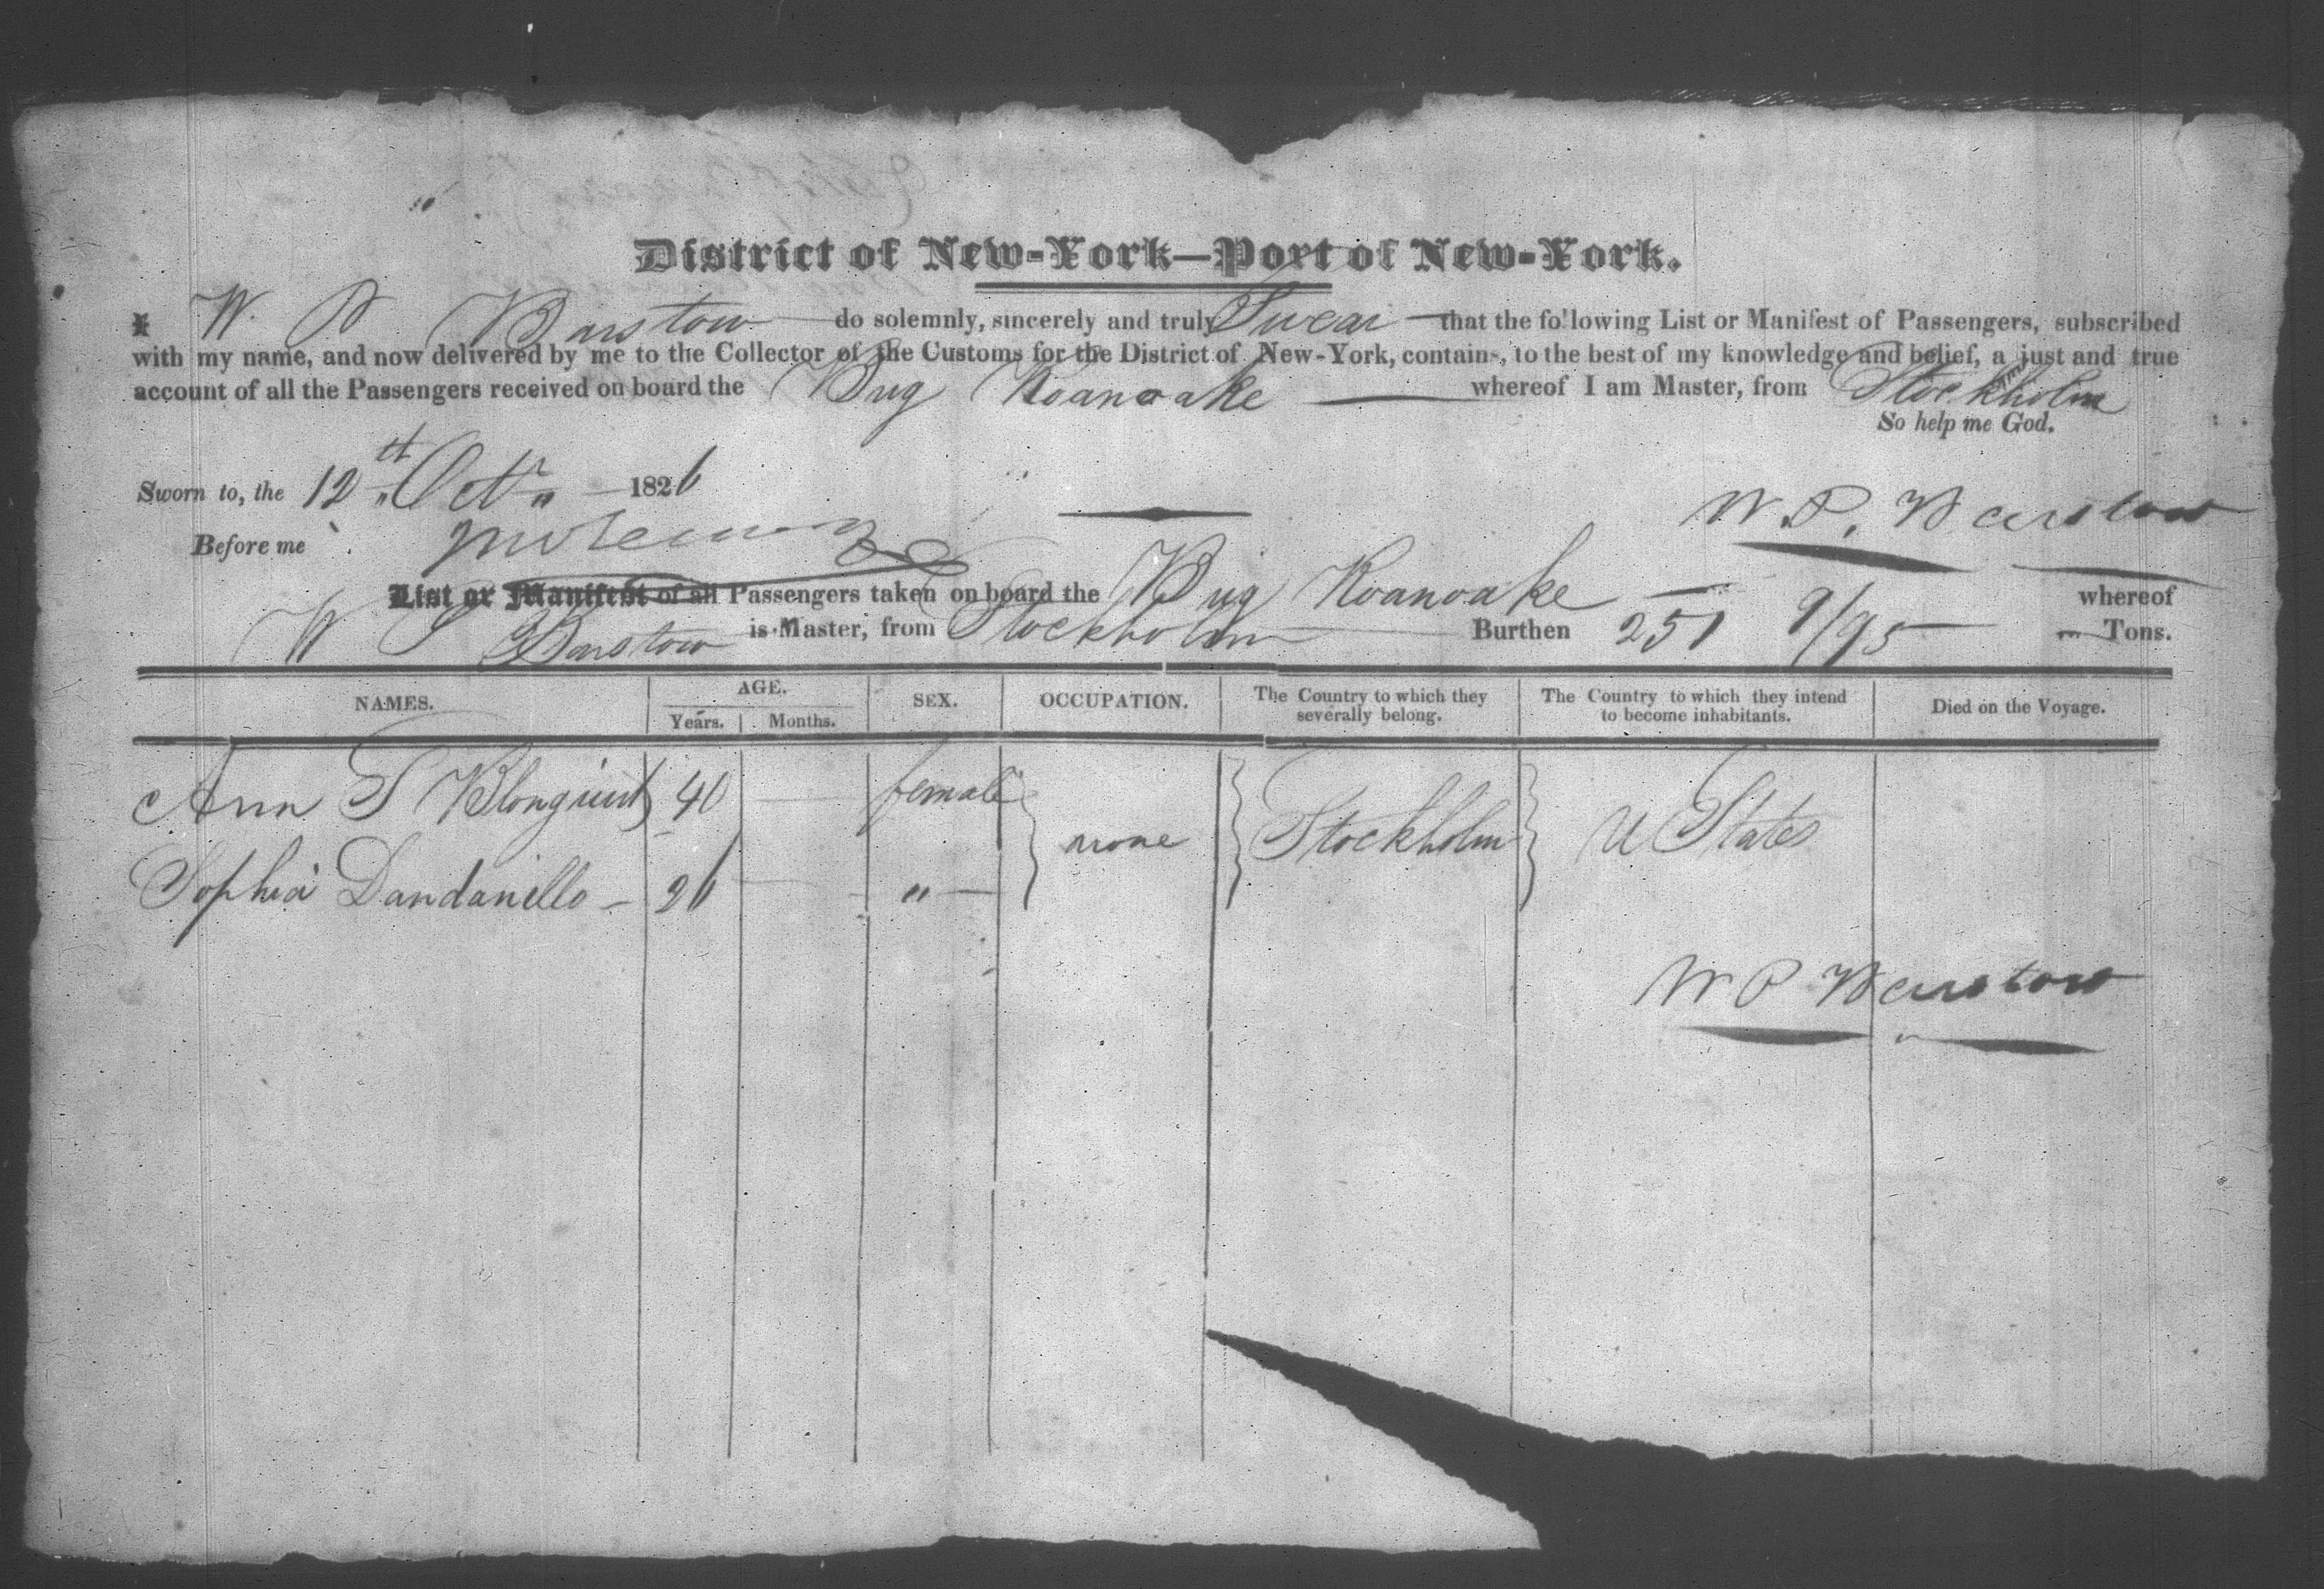 District of New-York—Port of New-York.
I W. P. Barstow do solemnly, sincerely and truly Swear that the following List or Manifest of Passengers, subscribed
with my name, and now delivered by me to the Collector of the Customs for the District of New-York, contains, to the best of my knowledge and belief, a just and true
account of all the Passengers received on board the Brig Roanoake whereof I am Master, from Stockholm
So help me God.
Sworn to, the 12th Oct. 1826
W. P. Barstow
Before me
List or Manifest of all Passengers taken on board the Brig Roanoake whereof
W P Barstow is Master, from Stockholm Burthen 251 9/95 Tons.
NAMES. AGE. SEX. OCCUPATION. The Country to which they severally belong. The Country to which they intend to become inhabitants. Died on the Voyage.
Years. Months.
Ann S Blonquist 40 female
none Stockholm U States
Sophia Dandanillo — 26 — " —
W P Barstow